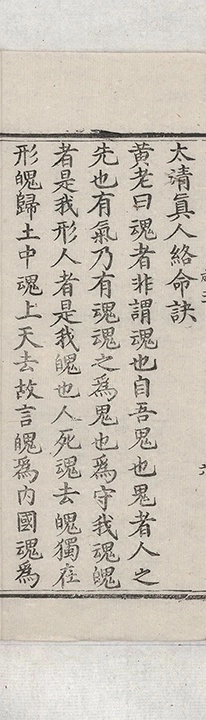 太清真人絡命訣
黄老曰魂者非謂魂也自吾鬼也鬼者人之
先也有氣乃有魂魂之為鬼也為守我魂魄
者是我形人者是我魄也人死魂去魄獨在
形魄歸土中魂上天去故言魄為内國魂為